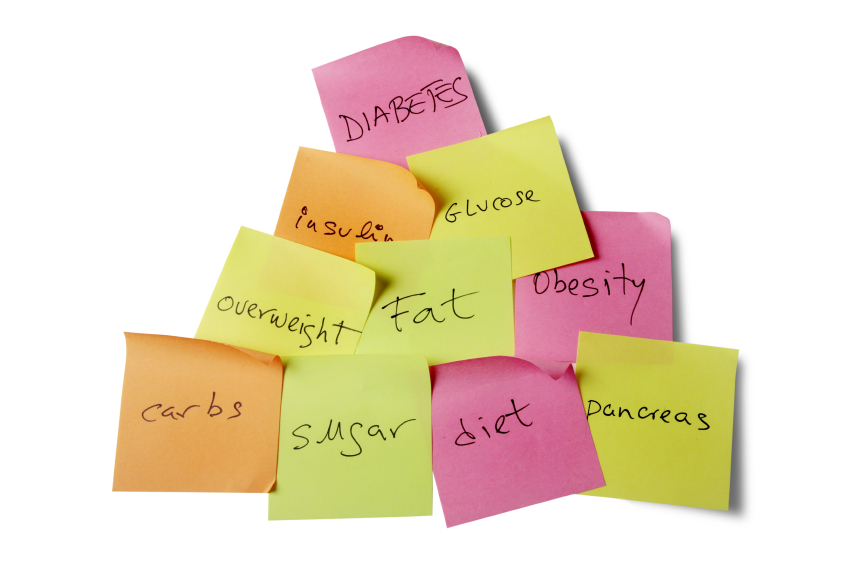 DIABETES
insulin
GLUCOSE
overweight
Fat
Obesity
carbs
sugar
diet
pancreas